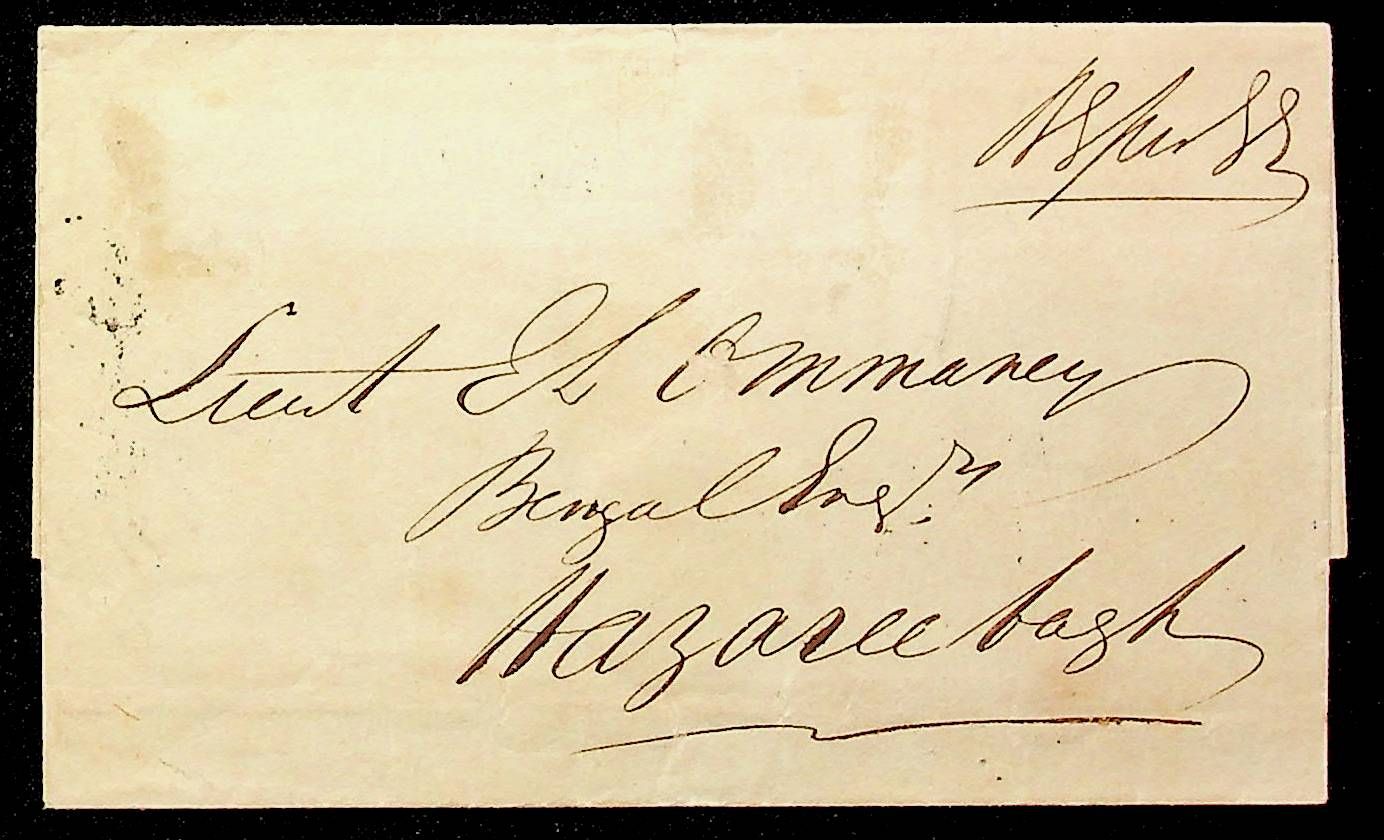 Lieut E L Ommaney
Bengal Engrs.
Hazareebagh